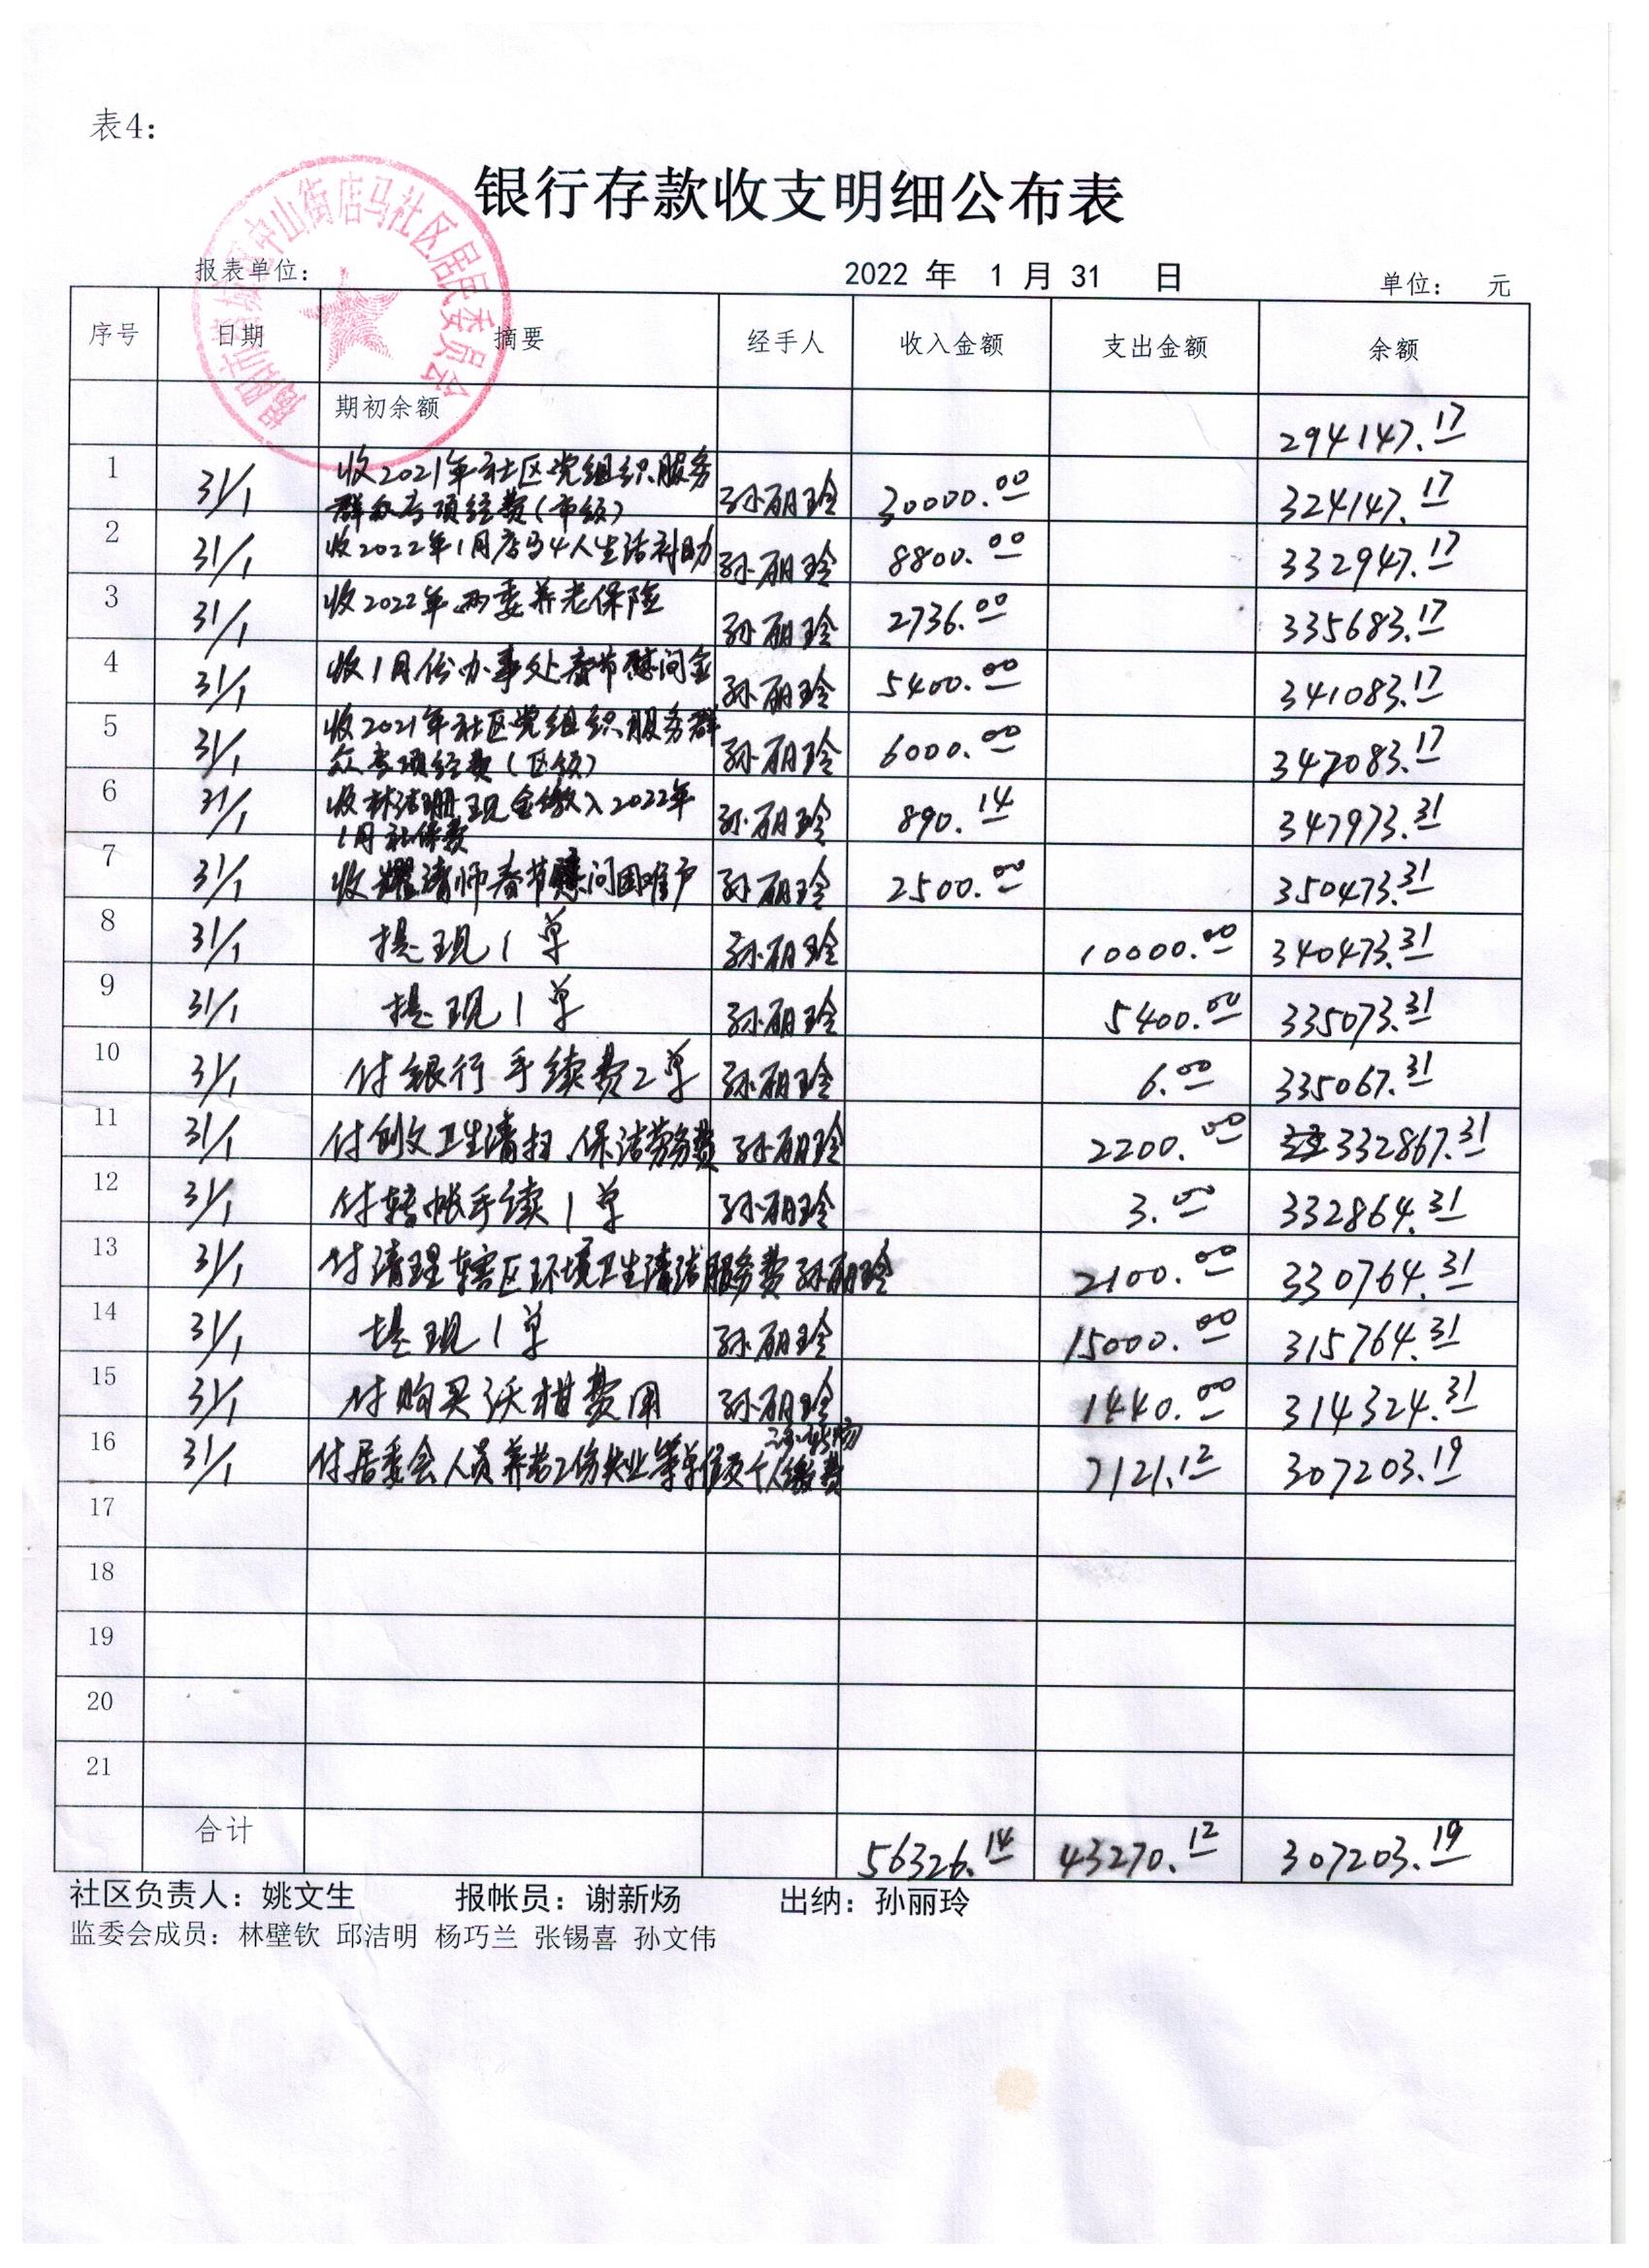 表4:
银行存款收支明细公布表
中山街店马社区居民委员会
报表单位: 2022 年 1 月 31 日 单位: 元
序号 日期 摘要 经手人 收入金额 支出金额 余额
期初余额 294147.17
1 31/1 收2021年社区党组织服务群众专项经费(市级) 孙丽玲 30000.00 324147.17
2 31/1 收2022年1月店马4人生活补助 孙丽玲 8800.00 332947.17
3 31/1 收2022年两委养老保险 孙丽玲 2736.00 335683.17
4 31/1 收1月份办事处春节慰问金 孙丽玲 5400.00 341083.17
5 31/1 收2021年社区党组织服务群众专项经费(区级) 孙丽玲 6000.00 347083.17
6 31/1 收林洁珊现金缴入2022年1月社保费 孙丽玲 890.14 347973.31
7 31/1 收 清师春节慰问困难户 孙丽玲 2500.00 350473.31
8 31/1 提现1单 孙丽玲 10000.00 340473.31
9 31/1 提现1单 孙丽玲 5400.00 335073.31
10 31/1 付银行手续费2单 孙丽玲 6.00 335067.31
11 31/1 付创文卫生清扫、保洁劳务费 孙丽玲 2200.00 332867.31
12 31/1 付转帐手续1单 孙丽玲 3.00 332864.31
13 31/1 付清理辖区环境卫生清洁服务费 孙丽玲 2100.00 330764.31
14 31/1 提现1单 孙丽玲 15000.00 315764.31
15 31/1 付购买沃柑费用 孙丽玲 1440.00 314324.31
16 31/1 付居委会人员养老2份失业等单位及个人缴费 7121.12 307203.19
17
18
19
20
21
合计 56326.14 43270.12 307203.19
社区负责人: 姚文生 报帐员: 谢新炀 出纳: 孙丽玲
监委会成员: 林壁钦 邱洁明 杨巧兰 张锡喜 孙文伟